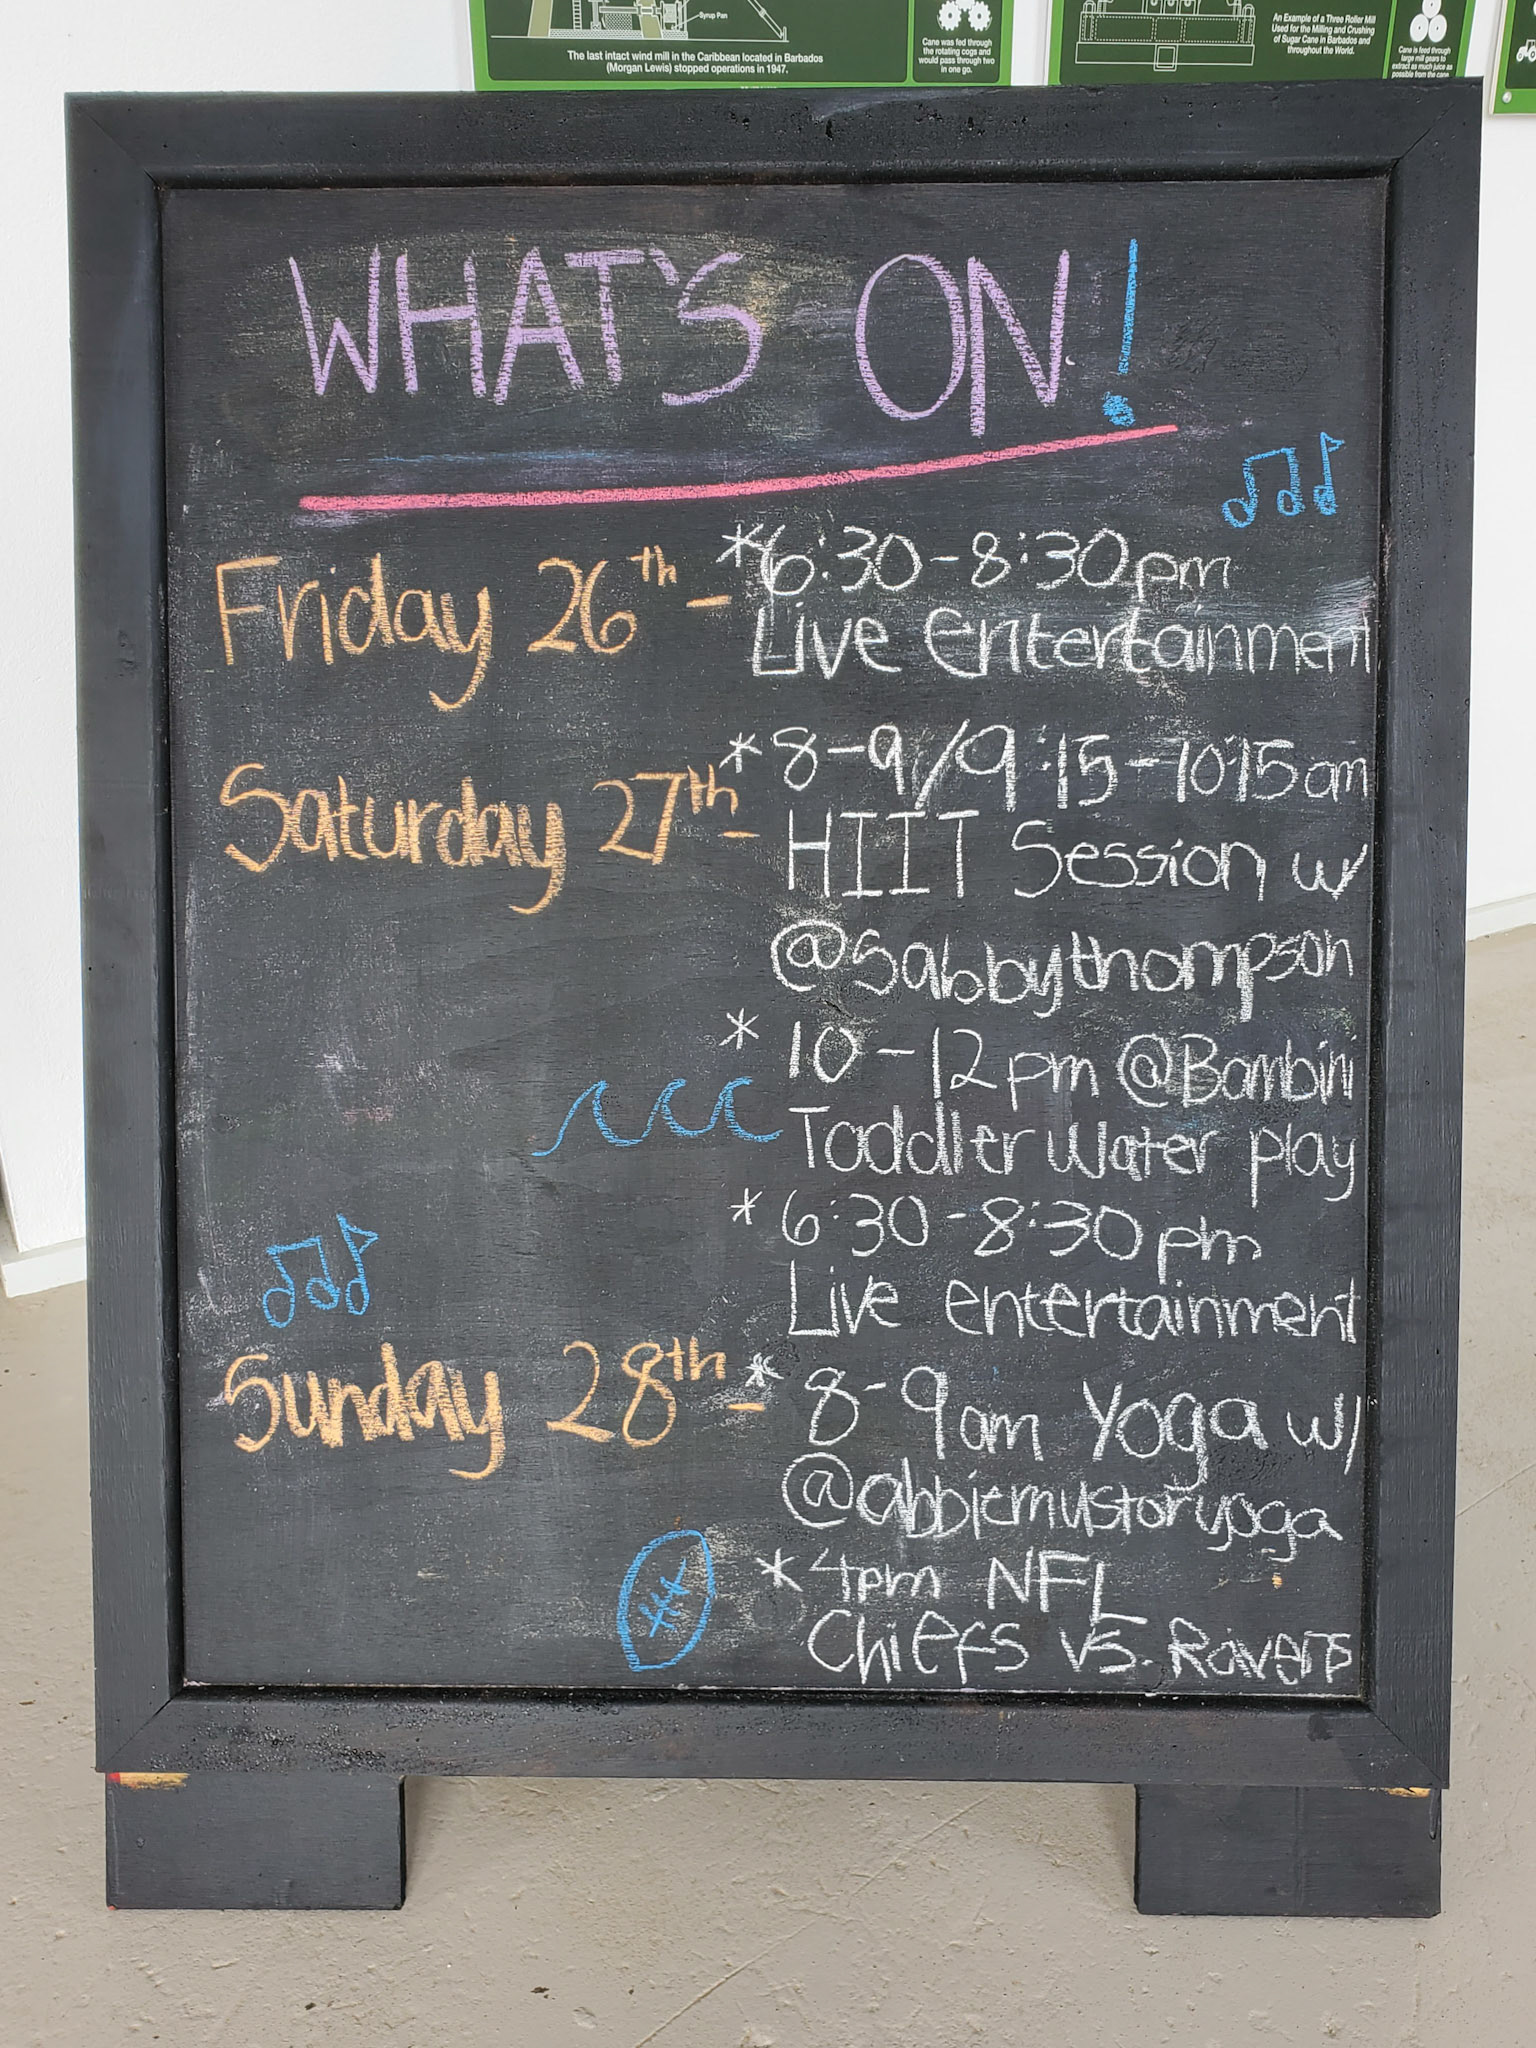 Syrup Pan
The last intact wind mill in the Caribbean located in Barbados
(Morgan Lewis) stopped operations in 1947.
Cane was fed through
the rotating cogs and
would pass through two
in one go.
An Example of a Three Roller Mill
Used for the Milling and Crushing
of Sugar Cane in Barbados and
throughout the World.
Cane is feed through
large mill gears to
extract as much juice as
possible from the cane
WHAT'S ON!
Friday 26th - *6:30-8:30pm
Live entertainment
Saturday 27th - *8-9/9:15-10:15am
HIIT Session w/
@sabbythompson
* 10-12pm @Bambini
Toddler Water play
* 6:30-8:30pm
Live entertainment
Sunday 28th - * 8-9am Yoga w/
@abbiemustoryoga
* 4pm NFL
Chiefs vs. Ravens